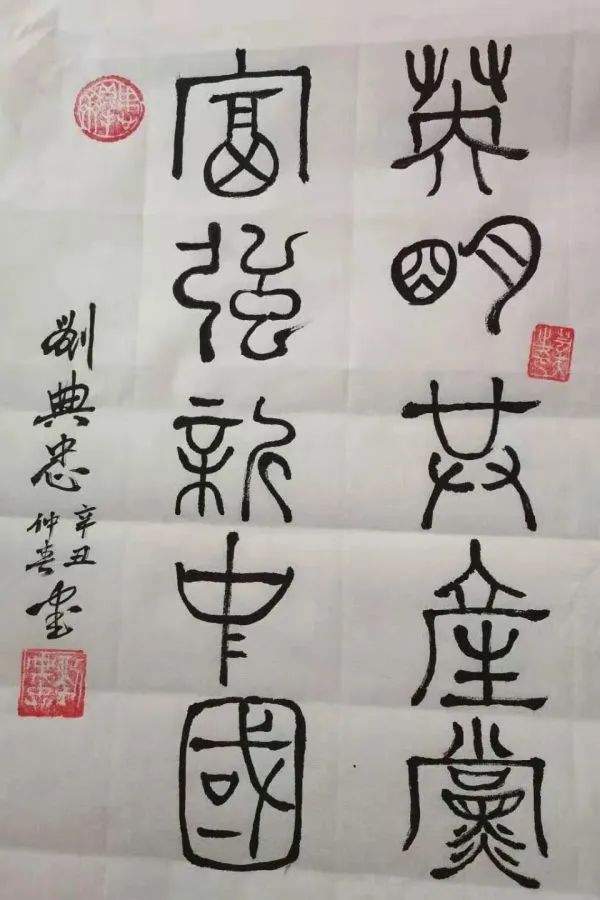 英明共産黨
富強新中國
劉典忠
辛丑
仲春
書